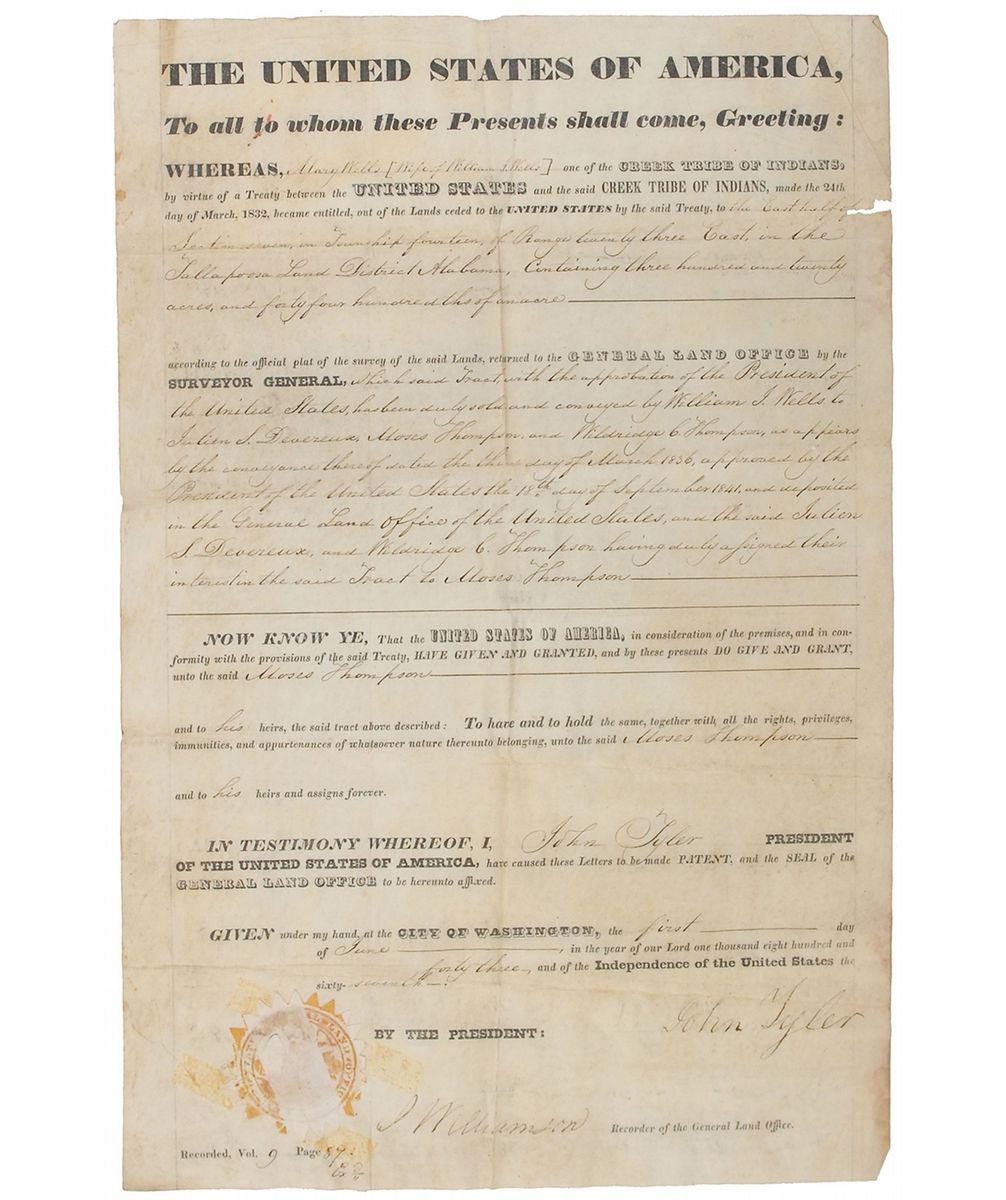 THE UNITED STATES OF AMERICA,
To all to whom these Presents shall come, Greeting:
WHEREAS, Mary Wells [Wife of William I. Wells] one of the CREEK TRIBE OF INDIANS,
by virtue of a Treaty between the UNITED STATES and the said CREEK TRIBE OF INDIANS, made the 24th
day of March, 1832, became entitled, out of the Lands ceded to the UNITED STATES by the said Treaty, to the East half of
Section seven, in Township fourteen, of Range twenty three East, in the
Tallapoosa Land District Alabama, Containing three hundred and twenty
acres, and forty four hundredths of an acre
according to the official plat of the survey of the said Lands, returned to the GENERAL LAND OFFICE by the
SURVEYOR GENERAL, Which said Tract, with the approbation of the President of
the United States, has been duly sold and conveyed by William I. Wells to
Julien S. Devereux, Moses Thompson, and Weldridge C. Thompson, as appears
by the conveyance thereof dated the third day of March 1836, approved by the
President of the United States the 18th day of September 1841, and deposited
in the General Land Office of the United States, and the said Julien
S. Devereux, and Weldridge C. Thompson having duly assigned their
interest in the said Tract to Moses Thompson
NOW KNOW YE, That the UNITED STATES OF AMERICA, in consideration of the premises, and in con-
formity with the provisions of the said Treaty, HAVE GIVEN AND GRANTED, and by these presents DO GIVE AND GRANT,
unto the said Moses Thompson
and to his heirs, the said tract above described: To have and to hold the same, together with all the rights, privileges,
immunities, and appurtenances of whatsoever nature thereunto belonging, unto the said Moses Thompson
and to his heirs and assigns forever.
IN TESTIMONY WHEREOF, I, John Tyler PRESIDENT
OF THE UNITED STATES OF AMERICA, have caused these Letters to be made PATENT, and the SEAL of the
GENERAL LAND OFFICE to be hereunto affixed.
GIVEN under my hand, at the CITY OF WASHINGTON, the first day
of June, in the year of our Lord one thousand eight hundred and
forty three, and of the Independence of the United States the
sixty-seventh.
John Tyler
BY THE PRESIDENT:
J Williamson Recorder of the General Land Office.
Recorded, Vol. 9 Page 87